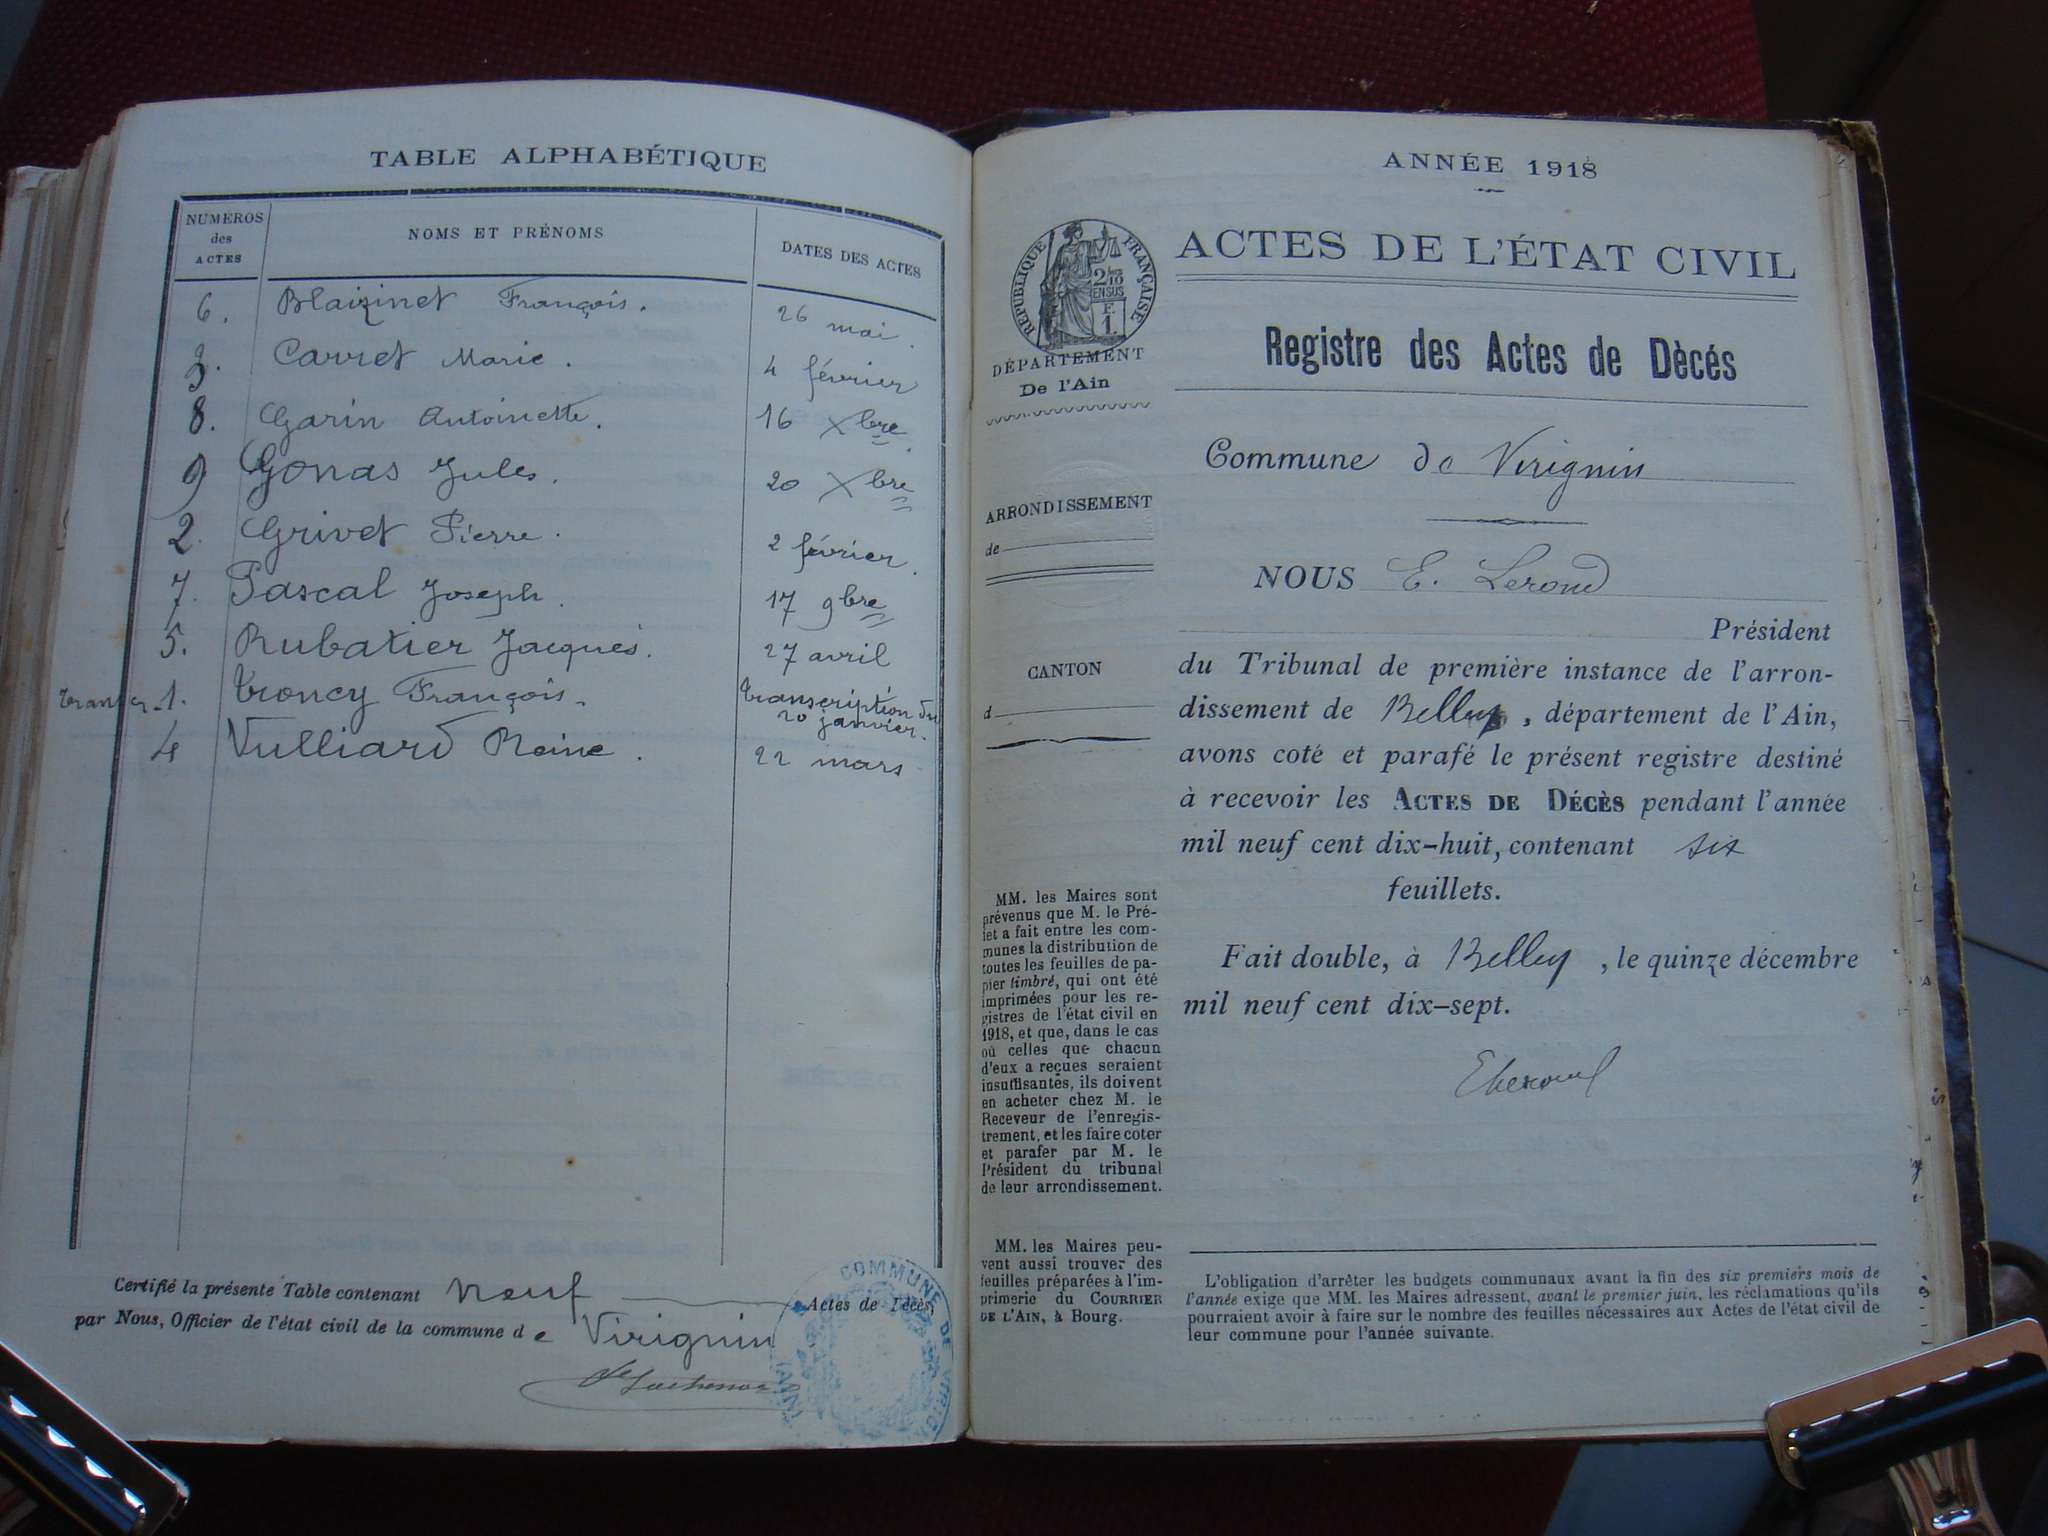 TABLE ALPHABÉTIQUE
NUMÉROS des ACTES
NOMS ET PRÉNOMS
DATES DES ACTES
6. Blaizinet François. 26 mai.
3. Carret Marie. 4 février
8. Garin Antoinette. 16 Xbre.
9 Gonas Jules. 20 Xbre
2. Grivet Pierre. 2 février.
7. Pascal Joseph. 17 9bre
5. Rubatier Jacques. 27 avril
1. Troncy François. transcription du
20 janvier.
4 Vulliard Reine. 22 mars
Certifié la présente Table contenant neuf Actes de Décès,
par Nous, Officier de l'état civil de la commune de Virignin
COMMUNE DE
ANNÉE 1918
ACTES DE L'ÉTAT CIVIL
RÉPUBLIQUE FRANÇAISE
2/10
EN SUS
F.
1.
DÉPARTEMENT
De l'Ain
Registre des Actes de Dècés
Commune de Virignin
ARRONDISSEMENT
de
NOUS E. Leroud
Président
CANTON
d
du Tribunal de première instance de l'arron-
dissement de Belley, département de l'Ain,
avons coté et parafé le présent registre destiné
à recevoir les ACTES DE DÉCÈS pendant l'année
mil neuf cent dix-huit, contenant six
feuillets.
Fait double, à Belley, le quinze décembre
mil neuf cent dix-sept.
MM. les Maires sont
prévenus que M. le Pré-
fet a fait entre les com-
munes la distribution de
toutes les feuilles de pa-
pier timbré, qui ont été
imprimées pour les re-
gistres de l'état civil en
1918, et que, dans le cas
où celles que chacun
d'eux a reçues seraient
insuffisantes, ils doivent
en acheter chez M. le
Receveur de l'enregis-
trement, et les faire coter
et parafer par M. le
Président du tribunal
de leur arrondissement.
MM. les Maires peu-
vent aussi trouver des
feuilles préparées à l'im-
primerie du COURRIER
DE L'AIN, à Bourg.
L'obligation d'arrêter les budgets communaux avant la fin des six premiers mois de
l'année exige que MM. les Maires adressent, avant le premier juin, les réclamations qu'ils
pourraient avoir à faire sur le nombre des feuilles nécessaires aux Actes de l'état civil de
leur commune pour l'année suivante.